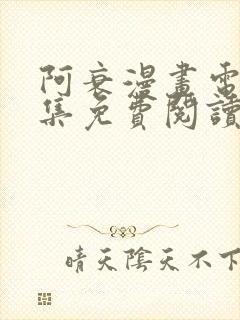 阿衰漫畫電
集免費閱讀
晴天陰天不下